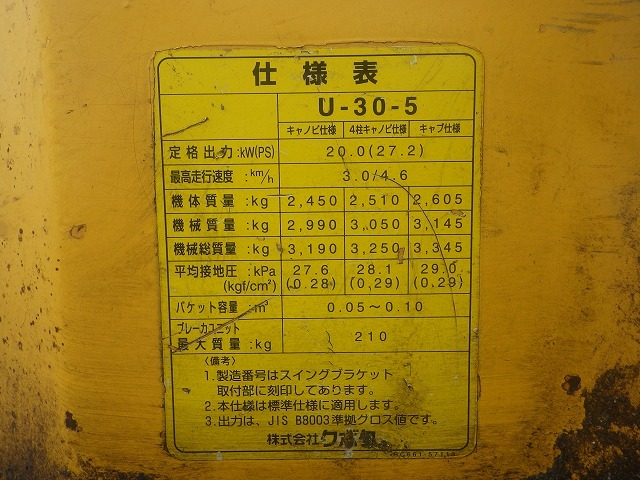 仕様表
U-30-5
キャノピ仕様 4柱キャノピ仕様 キャブ仕様
定格出力:kW(PS) 20.0(27.2)
最高走行速度:km/h 3.0/4.6
機体質量:kg 2,450 2,510 2,605
機械質量:kg 2,990 3,050 3,145
機械総質量:kg 3,190 3,250 3,345
平均接地圧:kPa 27.6 28.1 29.0
(kgf/cm²) (0.28) (0,29) (0.29)
バケット容量:m³ 0.05〜0.10
ブレーカユニット
最大質量:kg 210
〈備考〉
1.製造番号はスイングブラケット
取付部に刻印してあります。
2.本仕様は標準仕様に適用します。
3.出力は、JIS B8003準拠グロス値です。
株式会社クボタ